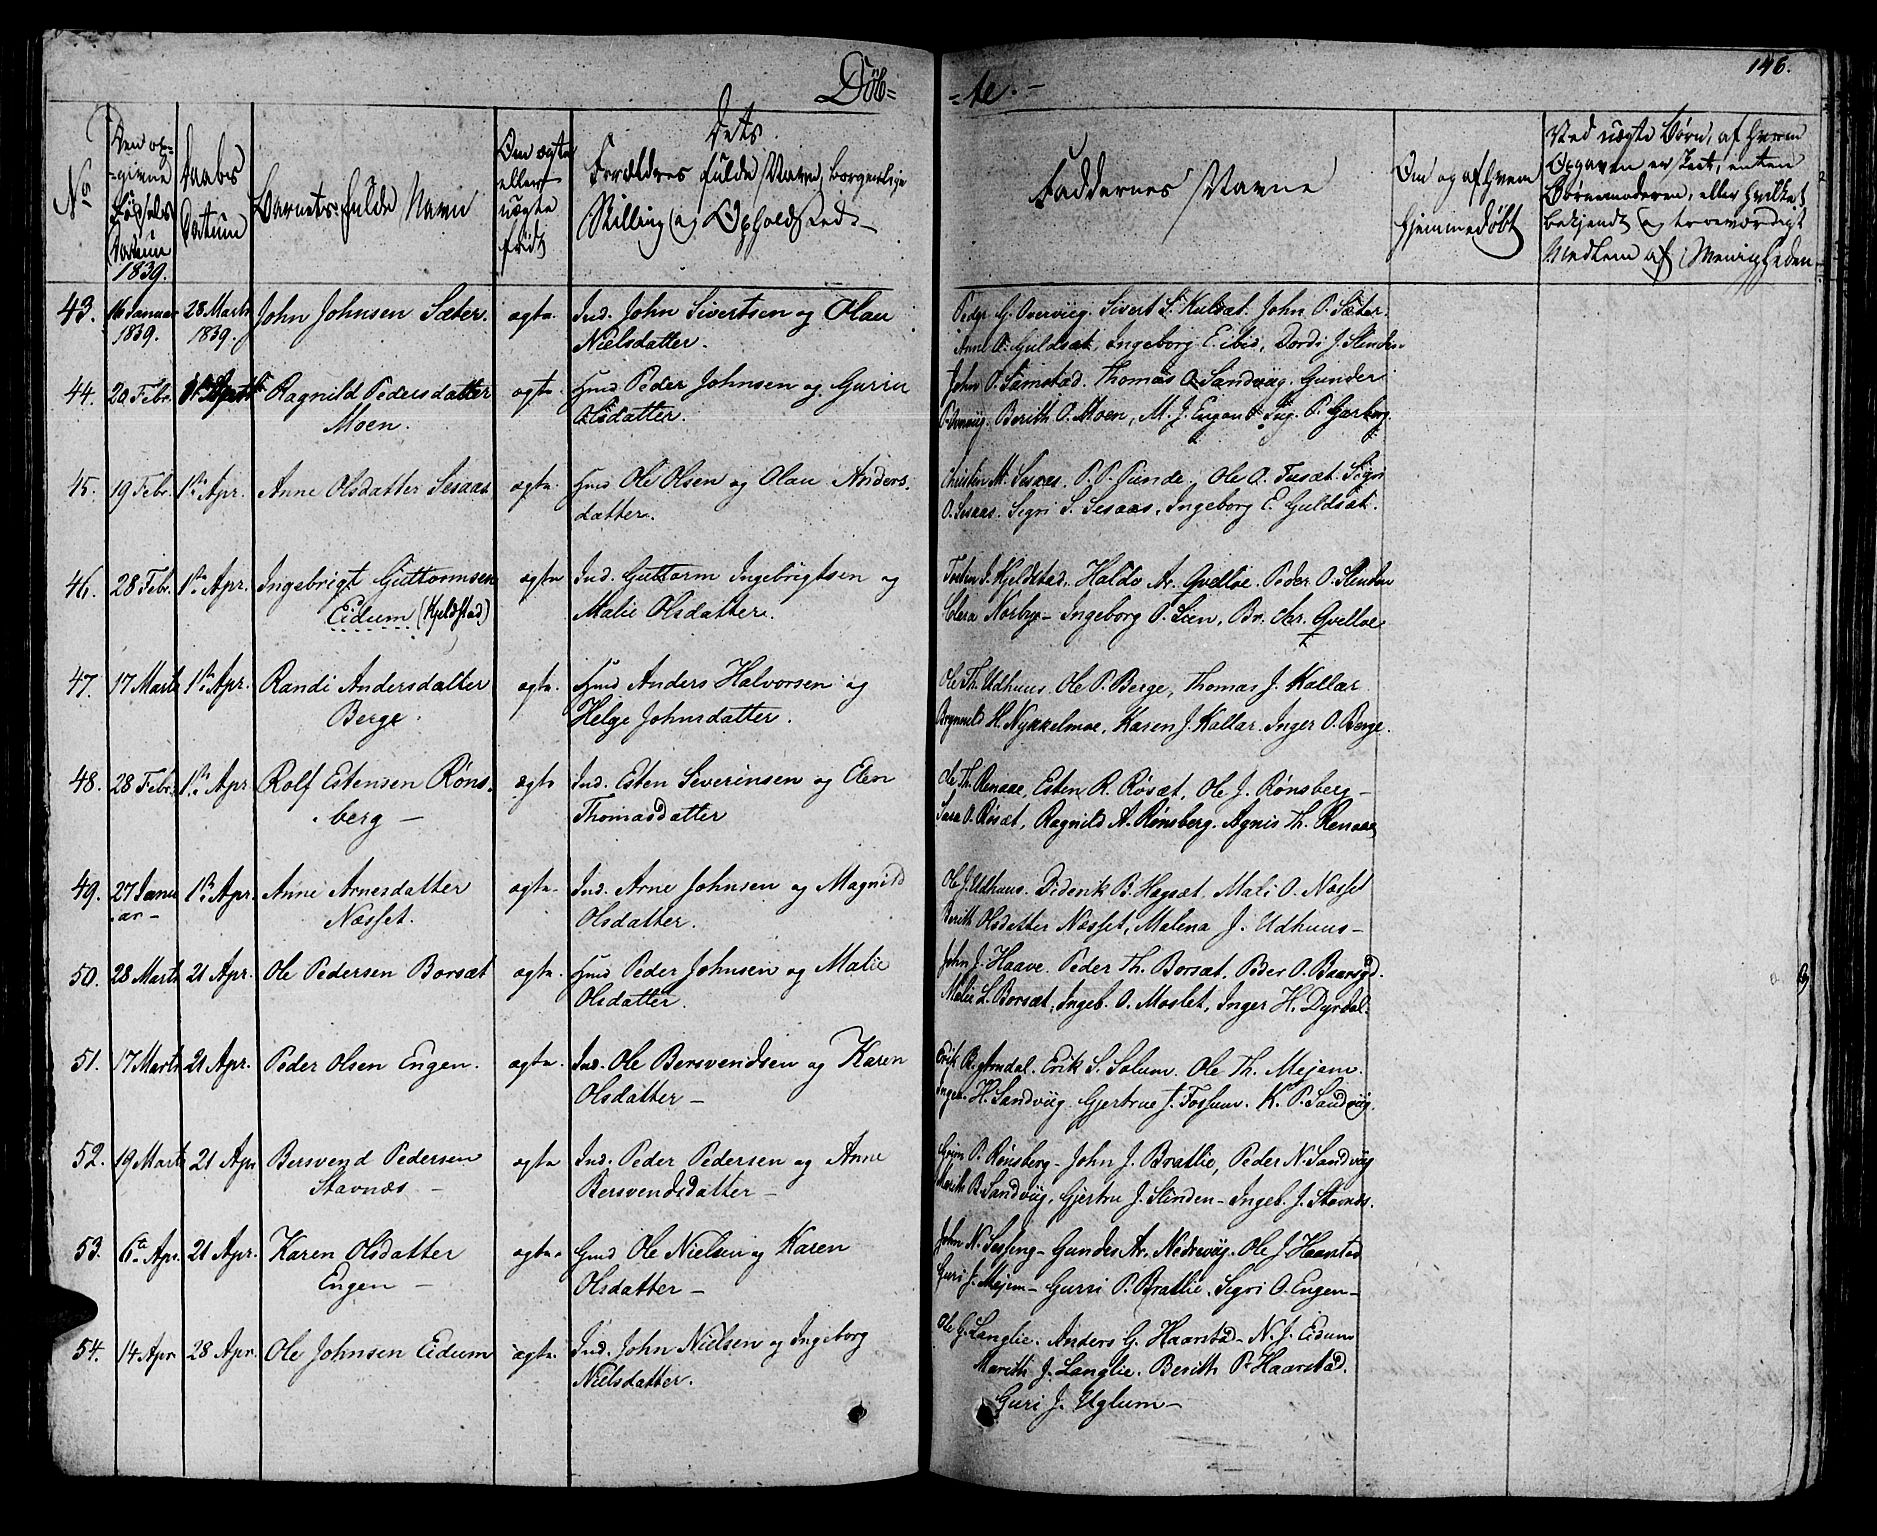 Døb=
=te. -
146.
No
Den op-
-givne
Fødsels
Datum
1839.
Daabs
Datum
Barnets fulde Navn
Om ægte
eller
uægte
født
Dets
Forældres fulde Navne, borgerlige
Stilling og Opholdssted. -
Faddernes Navne
Om og af hvem
hjemmedøbt
Ved uægte Børn, af hvem
Opgaven er skeet, enten
Børnemoderen, eller hvilket
bekjendt og troværdigt
Medlem af Menigheden -
43. 16 Januar 28 Marts John Johnsen Sæter. ægte. Ind. John Sivertsen og Olau
1839. 1839. Nielsdatter.
Peder G. Overviig. Sivert S. Kulsæt. John P. Sæter.
Anne O. Guldsæt, Ingeborg E. Eibes, Dordi J. Slinden
44. 20 Febr. Ragnild Pedersdatter ægte. Hmd Peder Johnsen og Guriu
Moen. Olsdatter.
John O. Samstad. Thomas O. Sandviig. Gunder
Berith O. Moen, M. J. Engen & Ing. P. Garberg.
45. 19 Febr. 1ste Apr. Anne Olsdatter Sesaas ægte. Hmd Ole Olsen og Olau Anders.
datter.
Christen M. Sesaas. P. P. Sunde, Ole O. Fusæt. Sigri
O. Sesaas. Sigri S. Sesaas, Ingeborg E. Guldsæt.
46. 28 Febr. 1ste Apr. Ingebrigt Guttormsen ægte Ind. Guttorm Ingebrigtsen og
Eidum (Kjeldstad) Malie Olsdatter.
Kjeldstad, Haldo Ar. Qvelloe. Peder O. Slinden
Norbye - Ingeborg O. Lien, Br. Chr. Qvelloe
47. 17 Marts 1ste Apr. Randi Andersdatter ægte. Hmd Anders Halvorsen og
Berge. Helge Johnsdatter.
Ole Th. Udhuus. Ole P. Berge, Thomas J. Kallar
H. Nykkelmoe, Karen J. Kallar. Inger O. Berge.
48. 28 Febr. 1ste Apr. Rolf Estensen Røns- ægte Ind. Esten Severinsen og Elen
berg - Thomasdatter
Ole Th. Renaae, Esten R. Røsæt, Ole J. Rønsberg -
O. Røsæt, Ragnild A. Rønsberg. Agnis Th. Renaae
49. 27 Janu 1ste Apr. Anne Arnesdatter ægte. Ind. Arne Johnsen og Magnild
ar - Næsset. Olsdatter.
Ole J. Udhuus. Diderik B. Hagsæt. Mali O. Næsset
Berith Olsdatter Næsset, Malena J. Udhuus -
50. 28 Marts 21 Apr. Ole Pedersen Borsæt ægte. Hmd Peder Johnsen og Malie
Olsdatter.
John J. Haave. Peder Th. Borsæt. Ber O. Baarsgd.
Malie L. Borsæt, Ingeb. O. Moslet, Inger H. Dyrdal.
51. 17 Marts 21 Apr. Peder Olsen Engen. ægte. Ind. Ole Bersvendsen og Karen
Olsdatter -
Erik B. Amdal. Erik S. Solum. Ole Th. Mejem.
H. Sandviig. Gjertrue J. Fossum. K. P. Sandviig.
52. 19 Marts 21 Apr Bersvend Pedersen ægte Ind. Peder Pedersen og Anne
Stavnæs - Bersvendsdatter -
P. Rønsberg - John J. Bratlie, Peder N. Sandviig
Marith B. Sandviig, Gjertru J. Slinden - Ingeb. J. Stavnæs.
53. 6te Apr. 21 Apr. Karen Olsdatter ægte. Gmd Ole Nielsen og Karen
Engen - Olsdatter -
John N. Sesseng - Gundes Ar. Nedreviig. Ole J. Haarstad
Guri J. Mejem - Gurri P. Bratlie. Sigri O. Engen -
54. 14 Apr 28 Apr. Ole Johnsen Eidum ægte. Ind. John Nielsen og Ingeborg
Nielsdatter.
Ole G. Langlie. Anders G. Haarstad - N. J. Eidum
Marith J. Langlie. Berith P. Haarstad.
Guri J. Uglum -